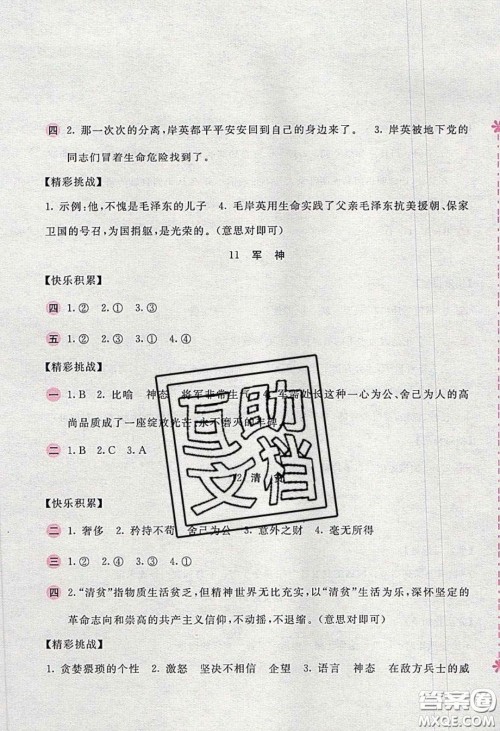 四 2. 那一次次的分离,岸英都平平安安回到自己的身边来了。 3. 岸英被地下党的
同志们冒着生命危险找到了。
【精彩挑战】
1. 示例:他,不愧是毛泽东的儿子 4. 毛岸英用生命实践了父亲毛泽东抗美援朝、保家
卫国的号召,为国捐躯,是光荣的。(意思对即可)
11 军 神
【快乐积累】
四 1.② 2.① 3.③
五 1.② 2.③ 3.① 4.④
【精彩挑战】
一 1.B 2. 比喻 神态 将军非常生气 4. 军需处长这种一心为公、舍己为人的高
尚品质成了一座绽放光芒、永不磨灭的丰碑
二 1.B 2.C 3.A
12 清 贫
【快乐积累】
二 1. 奢侈 2. 矜持不苟 舍己为公 3. 意外之财 4. 毫无所得
三 1.② 2.① 3.③ 4.④
四 2. “清贫”指物质生活贫乏,但精神世界无比充实,以“清贫”生活为乐,深怀坚定的
革命志向和崇高的共产主义信仰,不动摇,不退缩。(意思对即可)
【精彩挑战】
1. 贪婪猥琐的个性 2. 激怒 坚决不相信 企望 3. 语言 神态 在敌方兵士的威
互助文档
答案圈
MXQE.COM